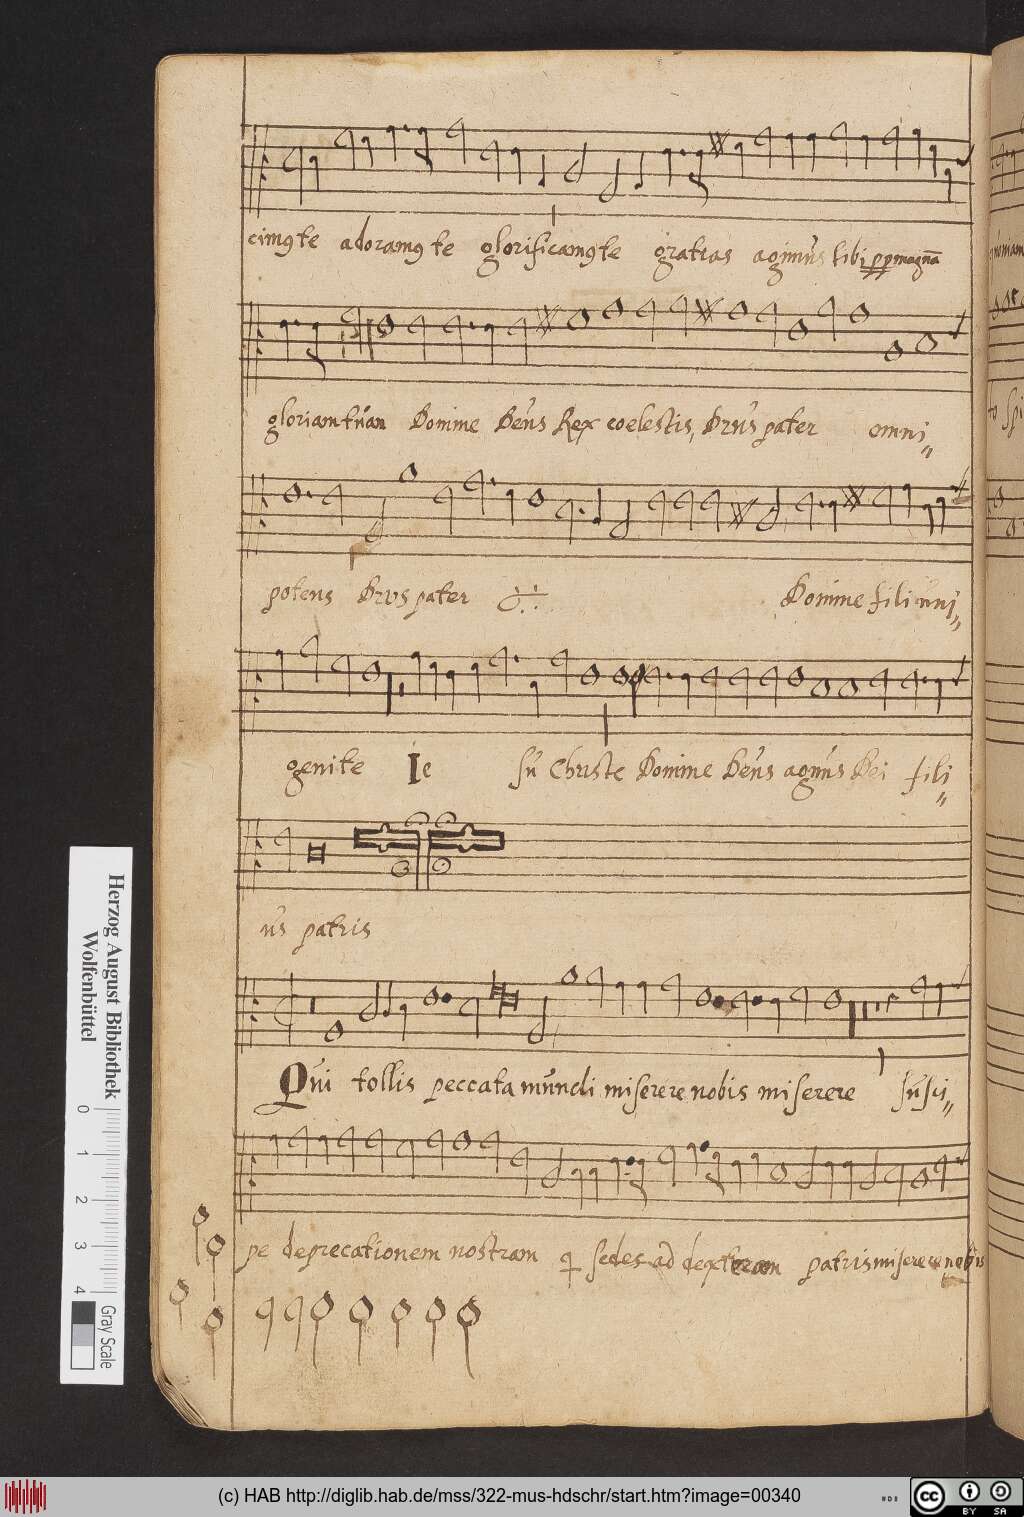 cimꝯ te adoramꝯ te glorificamꝯ te gratias agimus tibi pp magnā
gloriam tuam Domine Deus Rex coelestis, Deus pater omni〃
potens Deus pater Domine fili uni〃
genite Ie su Christe Domine Deus agnus Dei fili〃
us patris
Qui tollis peccata mundi miserere nobis miserere susci〃
pe deprecationem nostram q sedes ad dexteram patris miserere nobis
Herzog August Bibliothek
Wolfenbüttel
0 1 2 3 4
Gray Scale
(c) HAB http://diglib.hab.de/mss/322-mus-hdschr/start.htm?image=00340
cc BY SA